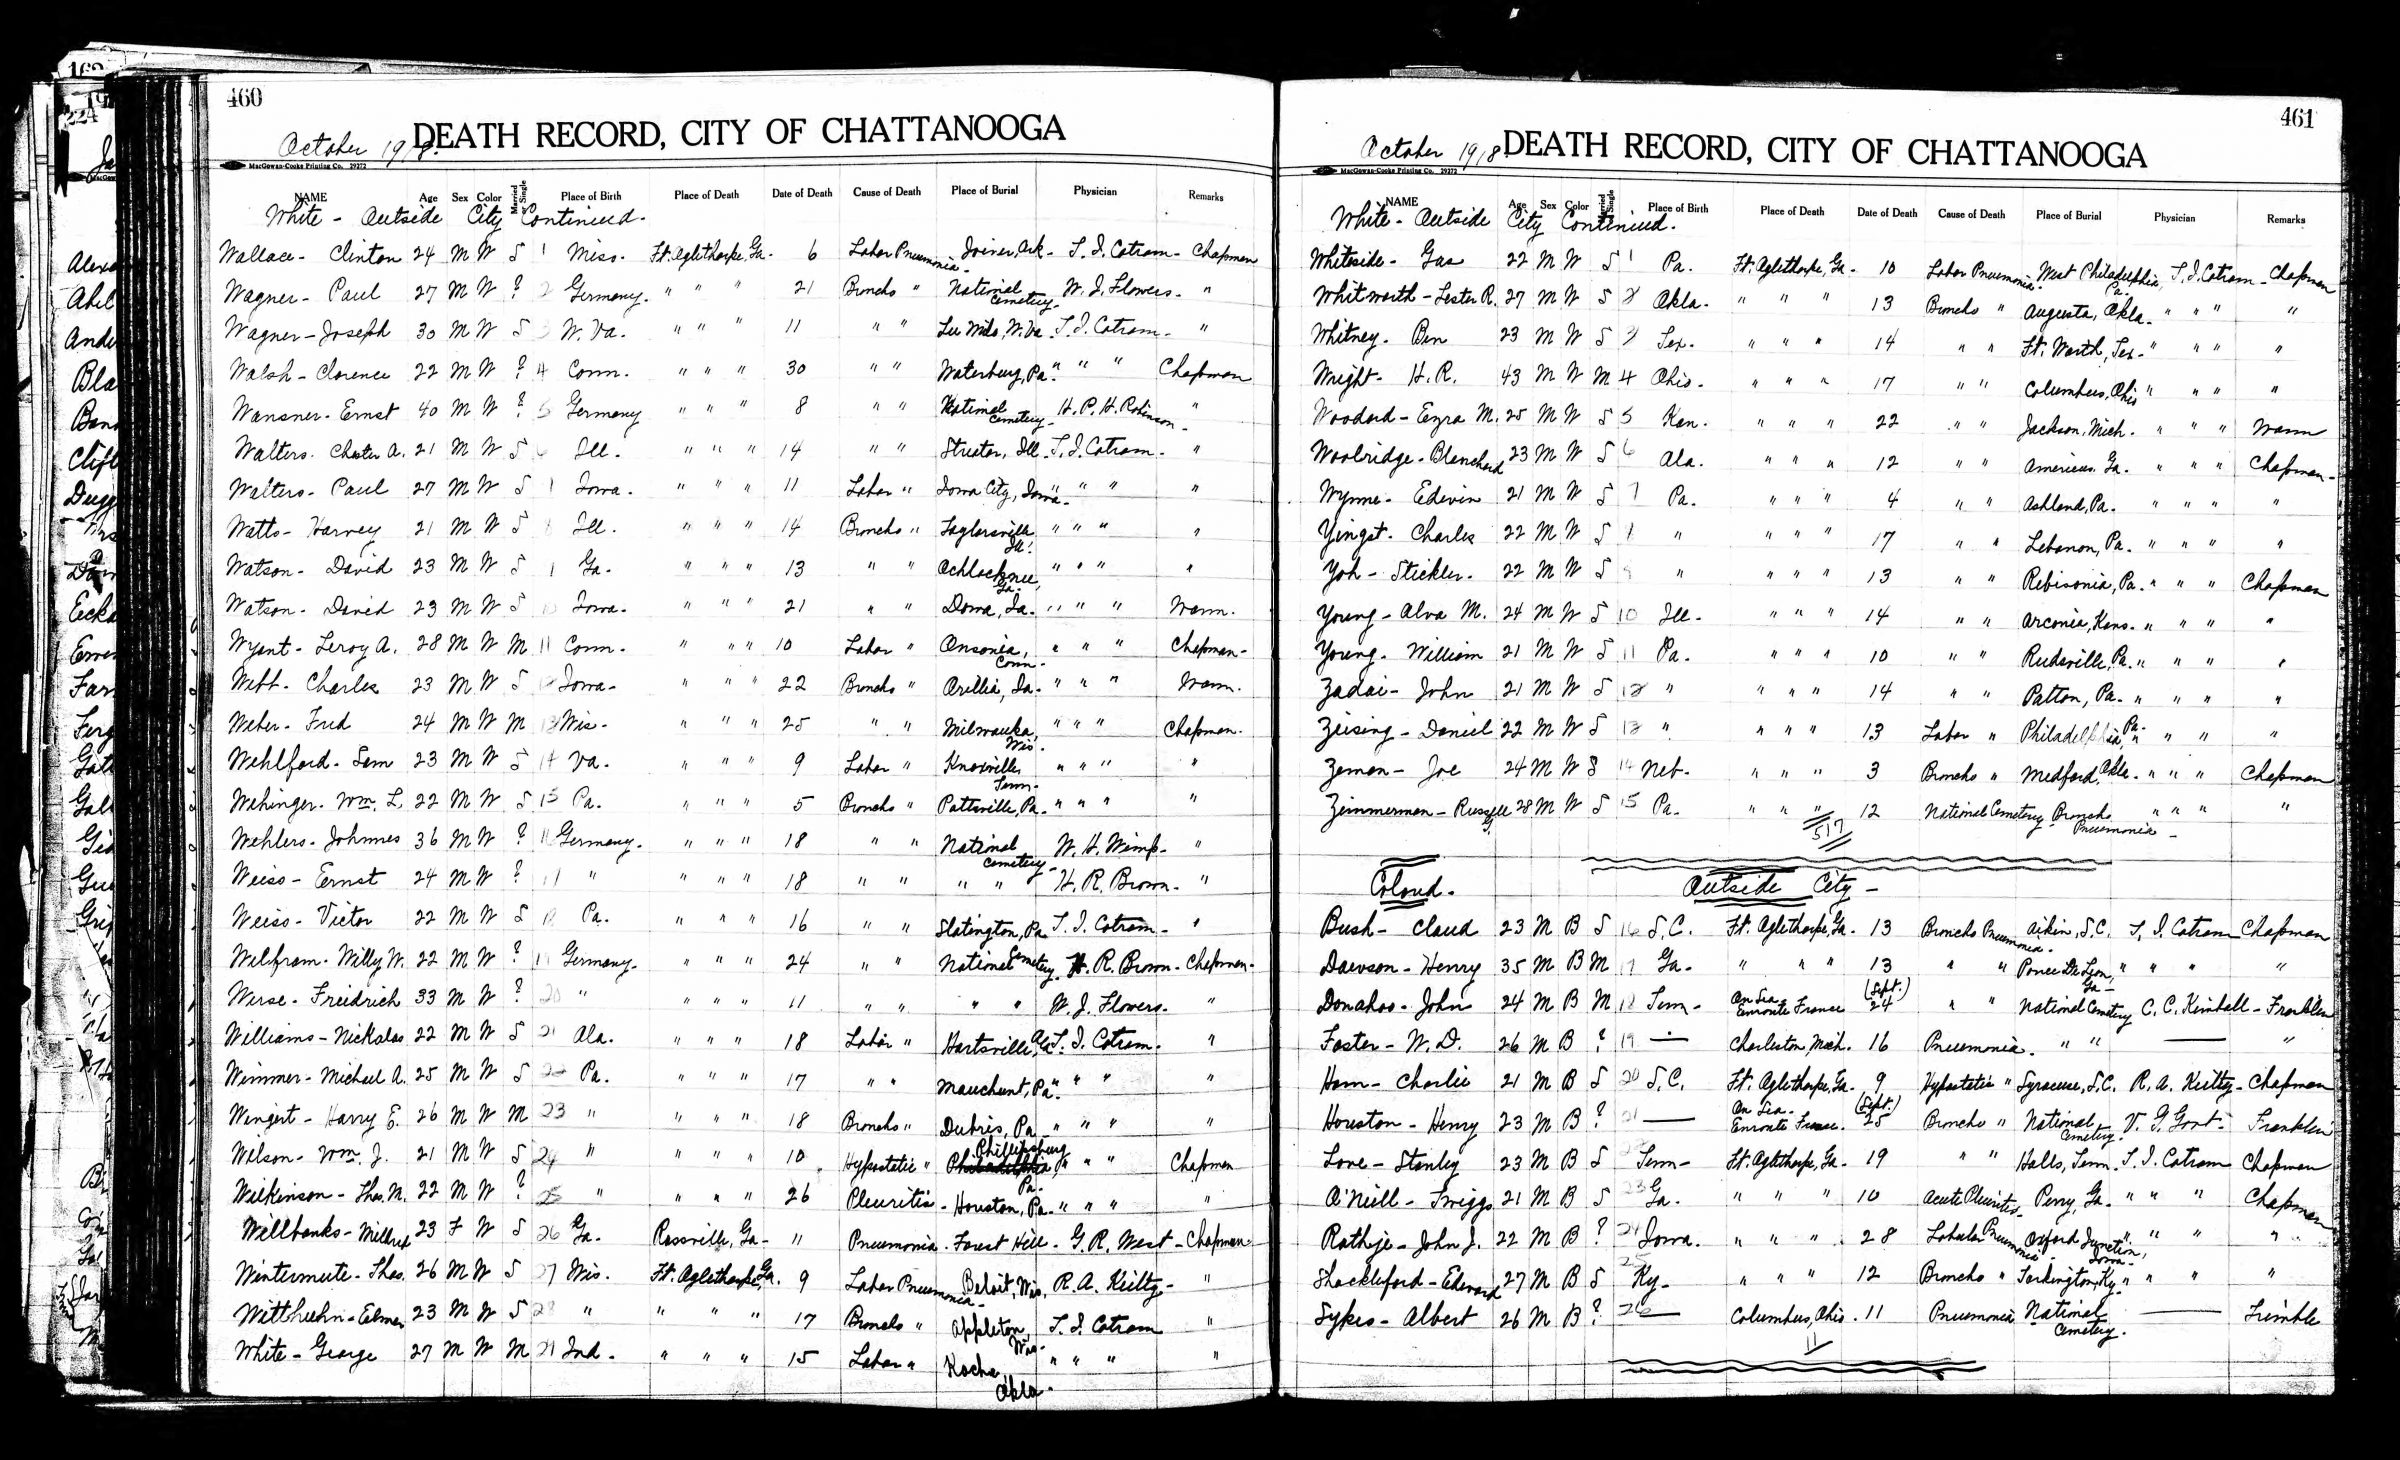 460
October 1918. DEATH RECORD, CITY OF CHATTANOOGA
MacGowan-Cooke Printing Co. 29272
NAME Age Sex Color Married Single Place of Birth Place of Death Date of Death Cause of Death Place of Burial Physician Remarks
White - Outside City Continued.
Wallace - Clinton 24 M W S 1 Miss. Ft. Oglethorpe, Ga. 6 Lobar Pneumonia. Joiner, Ark - T. I. Cotrom - Chapman
Wagner - Paul 27 M W ? 2 Germany. " " " 21 Broncho " National Cemetery - W. J. Flowers. "
Wagner - Joseph 30 M W S 3 W. Va. " " " 11 " " W. Va. T. I. Cotrom - "
Walsh - Clarence 22 M W ? 4 Conn. " " " 30 " " Waterbury, Pa. " " " Chapman
Wansner - Ernst 40 M W ? 5 Germany " " " 8 " " National Cemetery - H. P. H. Robinson - "
Walters. Chester A. 21 M W S 6 Ill. " " " 14 " " Streator, Ill. T. I. Cotrom. "
Walters - Paul 27 M W S Iowa. " " " 11 Lobar " Iowa City, Iowa " " " "
Watts - Harvey 21 M W S Ill. " " " 14 Broncho " Taylorsville " " " "
Watson - David 23 M W S Ga. " " " 13 " " Ochlocknee, Ga. " " " "
Watson - David 23 M W S 10 Iowa. " " " 21 " " Ia. " " " Wann.
Wyant - Leroy A. 28 M W M 11 Conn. " " " 10 Lobar " Ansonia, Conn. " " " Chapman -
Webb - Charles 23 M W S 12 Iowa - " " " 22 Broncho " Orillia, Ia. " " " Wann.
Weber - Fred 24 M W M 13 Wis - " " " 25 " " Milwauka, Wis. " " " Chapman.
Wehlford - Sam 23 M W S 14 Va. " " " 9 Lobar " Knoxville, Tenn. " " " "
Wehinger - Wm. L. 22 M W S 15 Pa. " " " 5 Broncho " Pottsville, Pa. " " " "
Wehlers - Johnnes 36 M W ? 16 Germany. " " " 18 " " National Cemetery - W. H. Wimp - "
Weiss - Ernst 24 M W ? " " " " 18 " " " " H. R. Brown - "
Weiss - Victor 22 M W S Pa. " " " 16 " " Slatington, Pa. T. I. Cotrom - "
Welfram - Willy W. 22 M W ? Germany. " " " 24 " " National Cemetery. H. R. Brown - Chapman -
Werse - Freidrich 33 M W ? 20 " " " " 11 " " " " W. J. Flowers. "
Williams - Nickolas 22 M W S 21 Ala. " " " 18 Lobar " Hartsville, Ala. T. I. Cotrom. "
Wimmer - Michael A. 25 M W S 22 Pa. " " " 17 " " Mauchunt, Pa. " " " "
Wingert - Harry E. 26 M W M 23 " " " " 18 Broncho " Dubris, Pa. " " " "
Wilson - Wm. J. 21 M W S 24 " " " " 10 Hypostatic " Phillipsburg, Pa. " " " Chapman
Wilkinson - Thos. M. 22 M W ? 25 " " " " 26 Pleuritis - Houston, Pa. " " " "
Willbanks - 23 F W S 26 Ga. Rossville, Ga - 11 Pneumonia - Forest Hill - G. R. West - Chapman
Wintermute - Thos. 26 M W S 27 Wis. Ft. Oglethorpe, Ga. 9 Lobar Pneumonia - Beloit, Wis. R. A. Kielty - "
Witthuhn - Elmer 23 M W S 28 " " " " 17 Broncho " Appleton, Wis. T. I. Cotrom "
White - George 27 M W M 29 Ind. " " " 15 Lobar " Okla. " " " "
461
October 1918. DEATH RECORD, CITY OF CHATTANOOGA
MacGowan-Cooke Printing Co. 29272
NAME Age Sex Color Married Single Place of Birth Place of Death Date of Death Cause of Death Place of Burial Physician Remarks
White - Outside City Continued.
Whiteside - Gus 22 M W S 1 Pa. Ft. Oglethorpe, Ga - 10 Lobar Pneumonia - West Philadelphia, Pa. T. I. Cotrom - Chapman
Whitworth - Lester R. 27 M W S 2 Okla. " " " 13 Broncho " Augusta, Okla. " " " "
Whitney - Ben 23 M W S 3 Tex. " " " 14 " " Ft. Worth, Tex - " " " "
Wright - H. R. 43 M W M 4 Ohio. " " " 17 " " Columbus, Ohio " " " "
Woodard - Ezra M. 25 M W S 5 Kan. " " " 22 " " Jackson, Mich. " " " Wann
Woolridge - Blanchard 23 M W S 6 Ala. " " " 12 " " Americus, Ga. " " " Chapman -
Wynne - Edwin 21 M W S 7 Pa. " " " 4 " " Ashland, Pa. " " " "
Yingst - Charles 22 M W S 8 " " " " 17 " " Lebanon, Pa. " " " "
Yoh - Stickler. 22 M W S 9 " " " " 13 " " Rebisonia, Pa. " " " Chapman
Young - Alva M. 24 M W S 10 Ill. " " " 14 " " Arconia, Kans. " " " "
Young - William 21 M W S 11 Pa. " " " 10 " " Rudsville, Pa. " " " "
Zadai - John 21 M W S 12 " " " " 14 " " Patton, Pa. " " " "
Zeising - Daniel 22 M W S 13 " " " " 13 Lobar " Philadelphia, Pa. " " " "
Zeman - Joe 24 M W S 14 Neb. " " " 3 Broncho " Medford, Okla. " " " Chapman
Zimmerman - Russell 28 M W S 15 Pa. " " " 12 National Cemetery Broncho Pneumonia - " " " "
517
Colored. Outside City -
Bush - Claud 23 M B S 16 S.C. Ft. Oglethorpe, Ga - 13 Broncho Pneumonia - Aikin, S.C. T. I. Cotrom Chapman
Dawson - Henry 35 M B M 17 Ga. " " " 13 " " Ponce De Leon, Ga - " " " "
Donahoo - John 24 M B M 18 Tenn - On Sea - Enroute France (Sept.) 24 " " National Cemetery C. C. Kimball - Franklin
Foster - W. D. 26 M B ? 19 — Charleston, Mich. 16 Pneumonia. " " — "
Ham - Charlie 21 M B S 20 S.C. Ft. Oglethorpe, Ga - 9 Hypostatic " Syracuse, S.C. R. A. Kielty - Chapman
Houston - Henry 23 M B ? 21 — On Sea - Enroute France. (Sept.) 25 Broncho " National Cemetery. V. G. Franklin
Love - Stanley 23 M B S Tenn - Ft. Oglethorpe, Ga - 19 " " Halls, Tenn. T. I. Cotrom Chapman
O'Niell - Triggs 21 M B S 23 Ga. " " " 10 Acute Pleuritis - Perry, Ga. " " " Chapman
Rathje - John J. 22 M B ? 24 Iowa. " " " 28 Lobular Pneumonia - Oxford Junction, Iowa - " " " "
Shackleford - Edward 27 M B S Ky - " " " 12 Broncho " Torkington, Ky. " " " "
Sykes - Albert 26 M B ? 26 — Columbus, Ohio. 11 Pneumonia National Cemetery. — Trimble
11